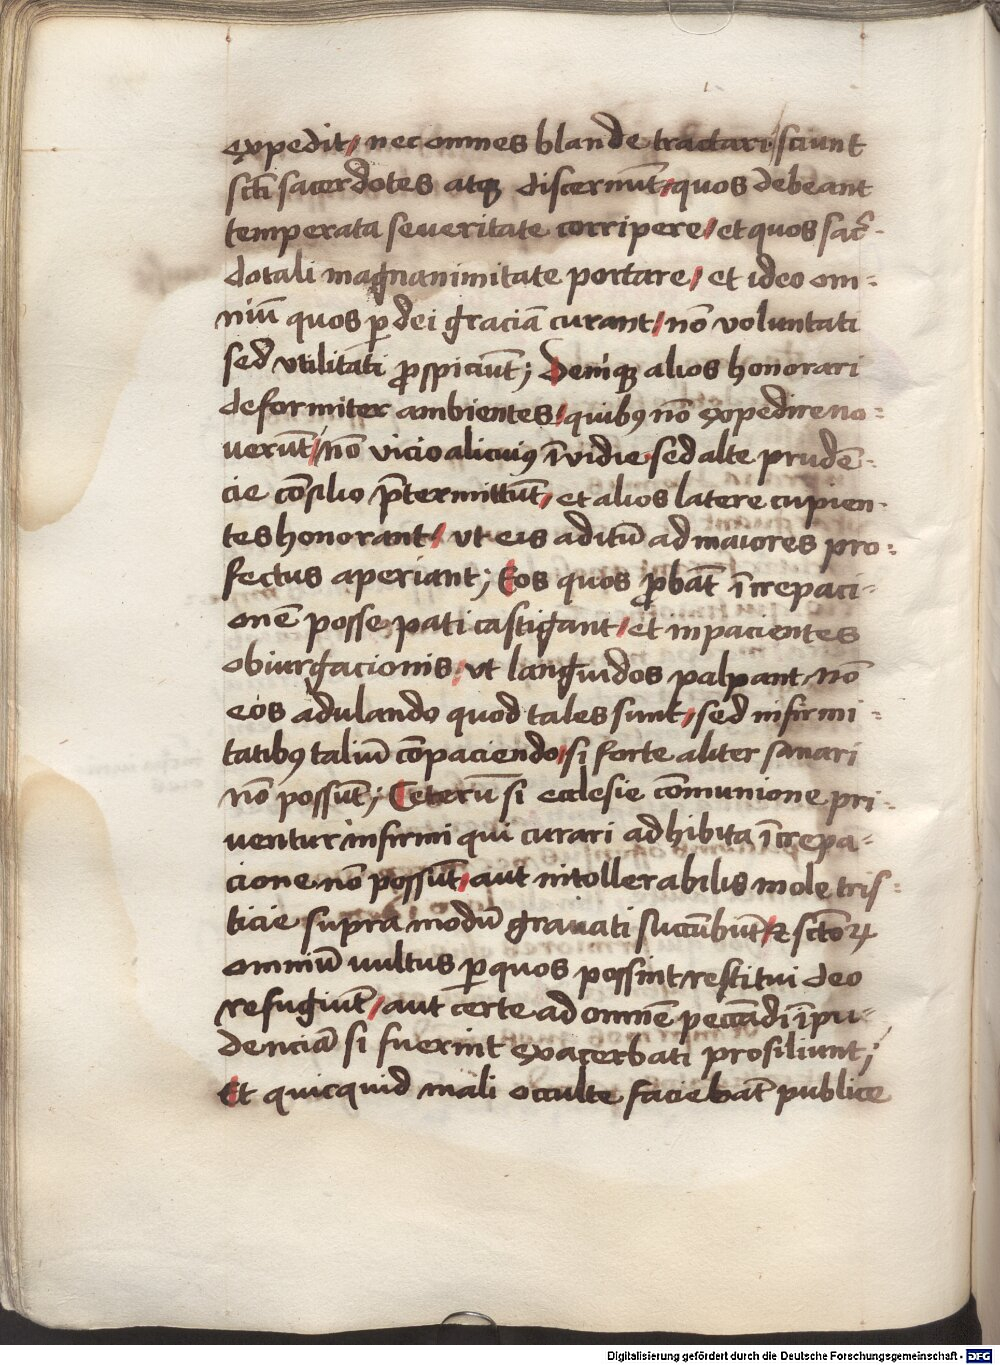 expedit / nec omnes blande tractari / sciunt
scti sacerdotes atqꝫ discernūt / quos debeant
temperata seueritate corripere / et quos sac̄-
dotali magnanimitate portare / et ideo om-
niū quos ꝑ dei graciā curant / nō voluntati
sed vtilitati ꝓspiciūt ; Deniqꝫ alios honorari
deformiter ambientes / quibꝰ nō expedire no-
uerūt / nō vicio alicuiꝰ īvidie sed alte prudē-
cie cōsilio p̄termittūt / et alios latere cupien-
tes honorant / vt eis aditū ad maiores pro-
fectus aperiant ; Eos quos ꝓbāt īcrepaci-
onē posse pati castigant / et inpacientes
obiurgacionis / vt languidos palpant nō
eos adulando quod tales sunt / sed infirmi-
tatibꝰ taliū cōpaciendo / si forte aliter sanari
nō possūt ; Ceterū si ecclesie cōmunione pri-
uentur infirmi qui curari adhibita īcrepa-
cione nō possūt / aut intollerabilis mole tris-
ticie supra modū grauati succūbūt / ⁊ sctōꝝ
omniū vultus ꝑ quos possint restitui deo
refugiūt / aut certe ad omnē peccādi īpu-
denciā si fuerint exacerbati prosiliunt ;
Et quicquid mali occulte faciebāt publice
Digitalisierung gefördert durch die Deutsche Forschungsgemeinschaft - DFG